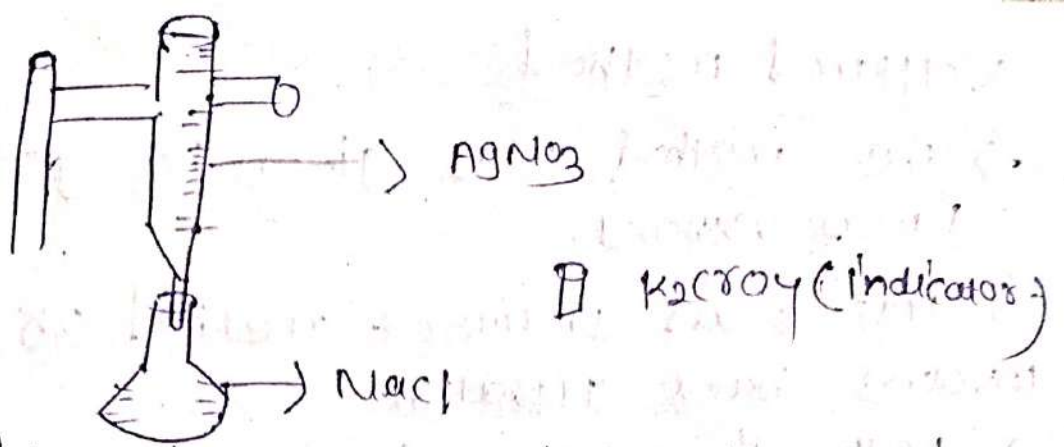 AgNO3
K2CrO4 (indicator)
NaCl